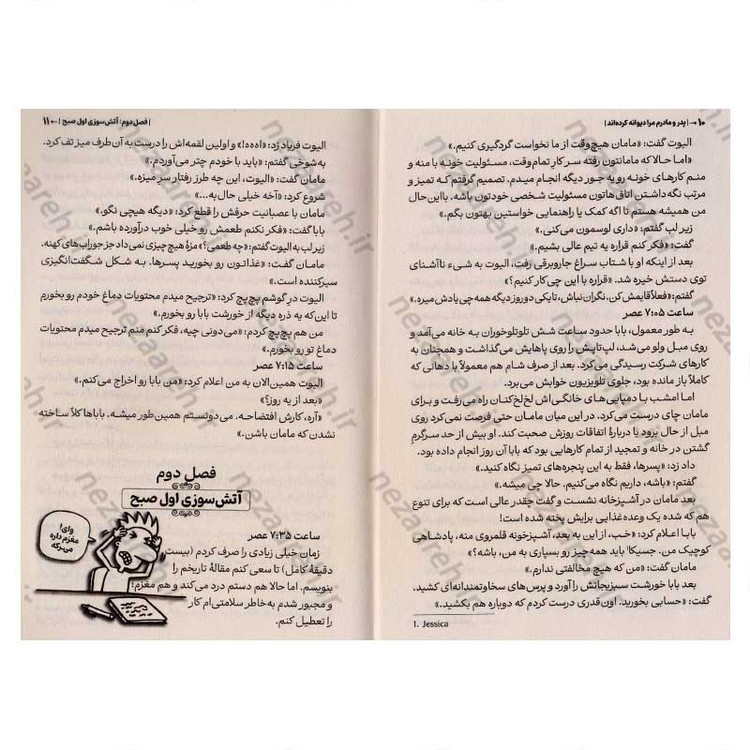 ۱۰ | پدر و مادرم مرا دیوانه کرده‌اند |
الیوت گفت: «مامان هیچ‌وقت از ما نخواست گردگیری کنیم.»
«اما حالا که مامانتون رفته سر کار تمام‌وقت، مسئولیت خونه با منه و
منم کارهای خونه رو یه جور دیگه انجام میدم. تصمیم گرفتم که تمیز و
مرتب نگه داشتن اتاق‌هاتون مسئولیت شخصی خودتون باشه. بااین‌حال
من همیشه هستم تا اگه کمک یا راهنمایی خواستین بهتون بگم.»
زیر لب گفتم: «داری لوسمون می‌کنی.»
گفت: «فکر کنم قراره یه تیم عالی بشیم.»
بعد از اینکه او با شتاب سراغ جاروبرقی رفت، الیوت به شیء ناآشنای
توی دستش خیره شد. «قراره با این چی‌کار کنیم؟»
گفتم: «فعلاً قایمش کن. نگران نباش، تا یکی دو روز دیگه همه چی یادش میره.»
ساعت ۷:۰۵ عصر
به طور معمول، بابا حدود ساعت شش تلوتلوخوران به خانه می‌آمد و
روی مبل ولو می‌شد، لپ‌تاپش را روی پاهایش می‌گذاشت و همچنان به
کارهای شرکت رسیدگی می‌کرد. بعد از صرف شام هم معمولاً با دهانی که
کاملاً باز مانده بود، جلوی تلویزیون خوابش می‌برد.
اما امشب با دمپایی‌های خانگی‌اش لخ‌لخ‌کنان راه می‌رفت و برای
مامان چای درست می‌کرد. در این میان مامان حتی فرصت نمی‌کرد روی
مبل از حال برود یا دربارهٔ اتفاقات روزش صحبت کند. او بیش از حد سرگرمِ
گشتن در خانه و تمجید از تمام کارهایی بود که بابا آن روز انجام داده بود.
داد زد: «پسرها، فقط به این پنجره‌های تمیز نگاه کنید.»
گفتم: «باشه، داریم نگاه می‌کنیم. حالا چی میشه.»
بعد مامان در آشپزخانه نشست و گفت چقدر عالی است که برای تنوع
هم که شده یک وعده‌غذایی برایش پخته شده است!
بابا اعلام کرد: «خب، از این به بعد، آشپزخونه قلمروی منه، پادشاهی
کوچیک من. جسیکا¹ باید همه‌چیز رو بسپاری به من، باشه؟»
مامان گفت: «من که هیچ مخالفتی ندارم.»
بعد بابا خورشت سبزیجاتش را آورد و پرس‌های سخاوتمندانه‌ای کشید.
گفت: «حسابی بخورید. اون‌قدری درست کردم که دوباره هم بکشید.»
1. Jessica
| فصل دوم: آتش‌سوزی اول صبح | ۱۱
الیوت فریاد زد: «اه‌ه‌ه‌!» و اولین لقمه‌اش را درست به آن‌طرف میز تف کرد.
به‌شوخی گفتم: «باید با خودم چتر می‌آوردم.»
مامان گفت: «الیوت، این چه طرز رفتار سرِ میزه.»
شروع کرد: «آخه خیلی حال‌به...»
مامان با عصبانیت حرفش را قطع کرد: «دیگه هیچی نگو.»
بابا گفت: «فکر نکنم طعمش رو خیلی خوب درآورده باشم.»
زیر لب به الیوت گفتم: «چه طعمی؟» مزهٔ هیچ‌چیزی نمی‌داد جز جوراب‌های کهنه.
مامان گفت: «غذاتون رو بخورید پسرها. به شکل شگفت‌انگیزی
سیرکننده است.»
الیوت در گوشم پچ‌پچ کرد: «ترجیح میدم محتویات دماغ خودم رو بخورم
تا این‌که یه ذره دیگه از خورشت بابا رو بخورم.»
من هم پچ‌پچ کردم: «می‌دونی چیه، فکر کنم منم ترجیح میدم محتویات
دماغ تو رو بخورم.»
ساعت ۷:۱۵ عصر
الیوت همین‌الان به من اعلام کرد: «من بابا رو اخراج می‌کنم.»
«بعد از یه روز؟»
«آره، کارش افتضاحه. می‌دونستم همین‌طور میشه. باباها کلاً ساخته
نشدن که مامان باشن.»
فصل دوم
آتش‌سوزی اول صبح
ساعت ۷:۳۵ عصر
زمان خیلی زیادی را صرف کردم (بیست
دقیقهٔ کامل) تا سعی کنم مقالهٔ تاریخم را
بنویسم. اما حالا هم دستم درد می‌کند و هم مغزم!
و مجبور شدم به‌خاطر سلامتی‌ام کار
را تعطیل کنم.
وای!
مغزم داره
می‌ترکه
nezaareh.ir